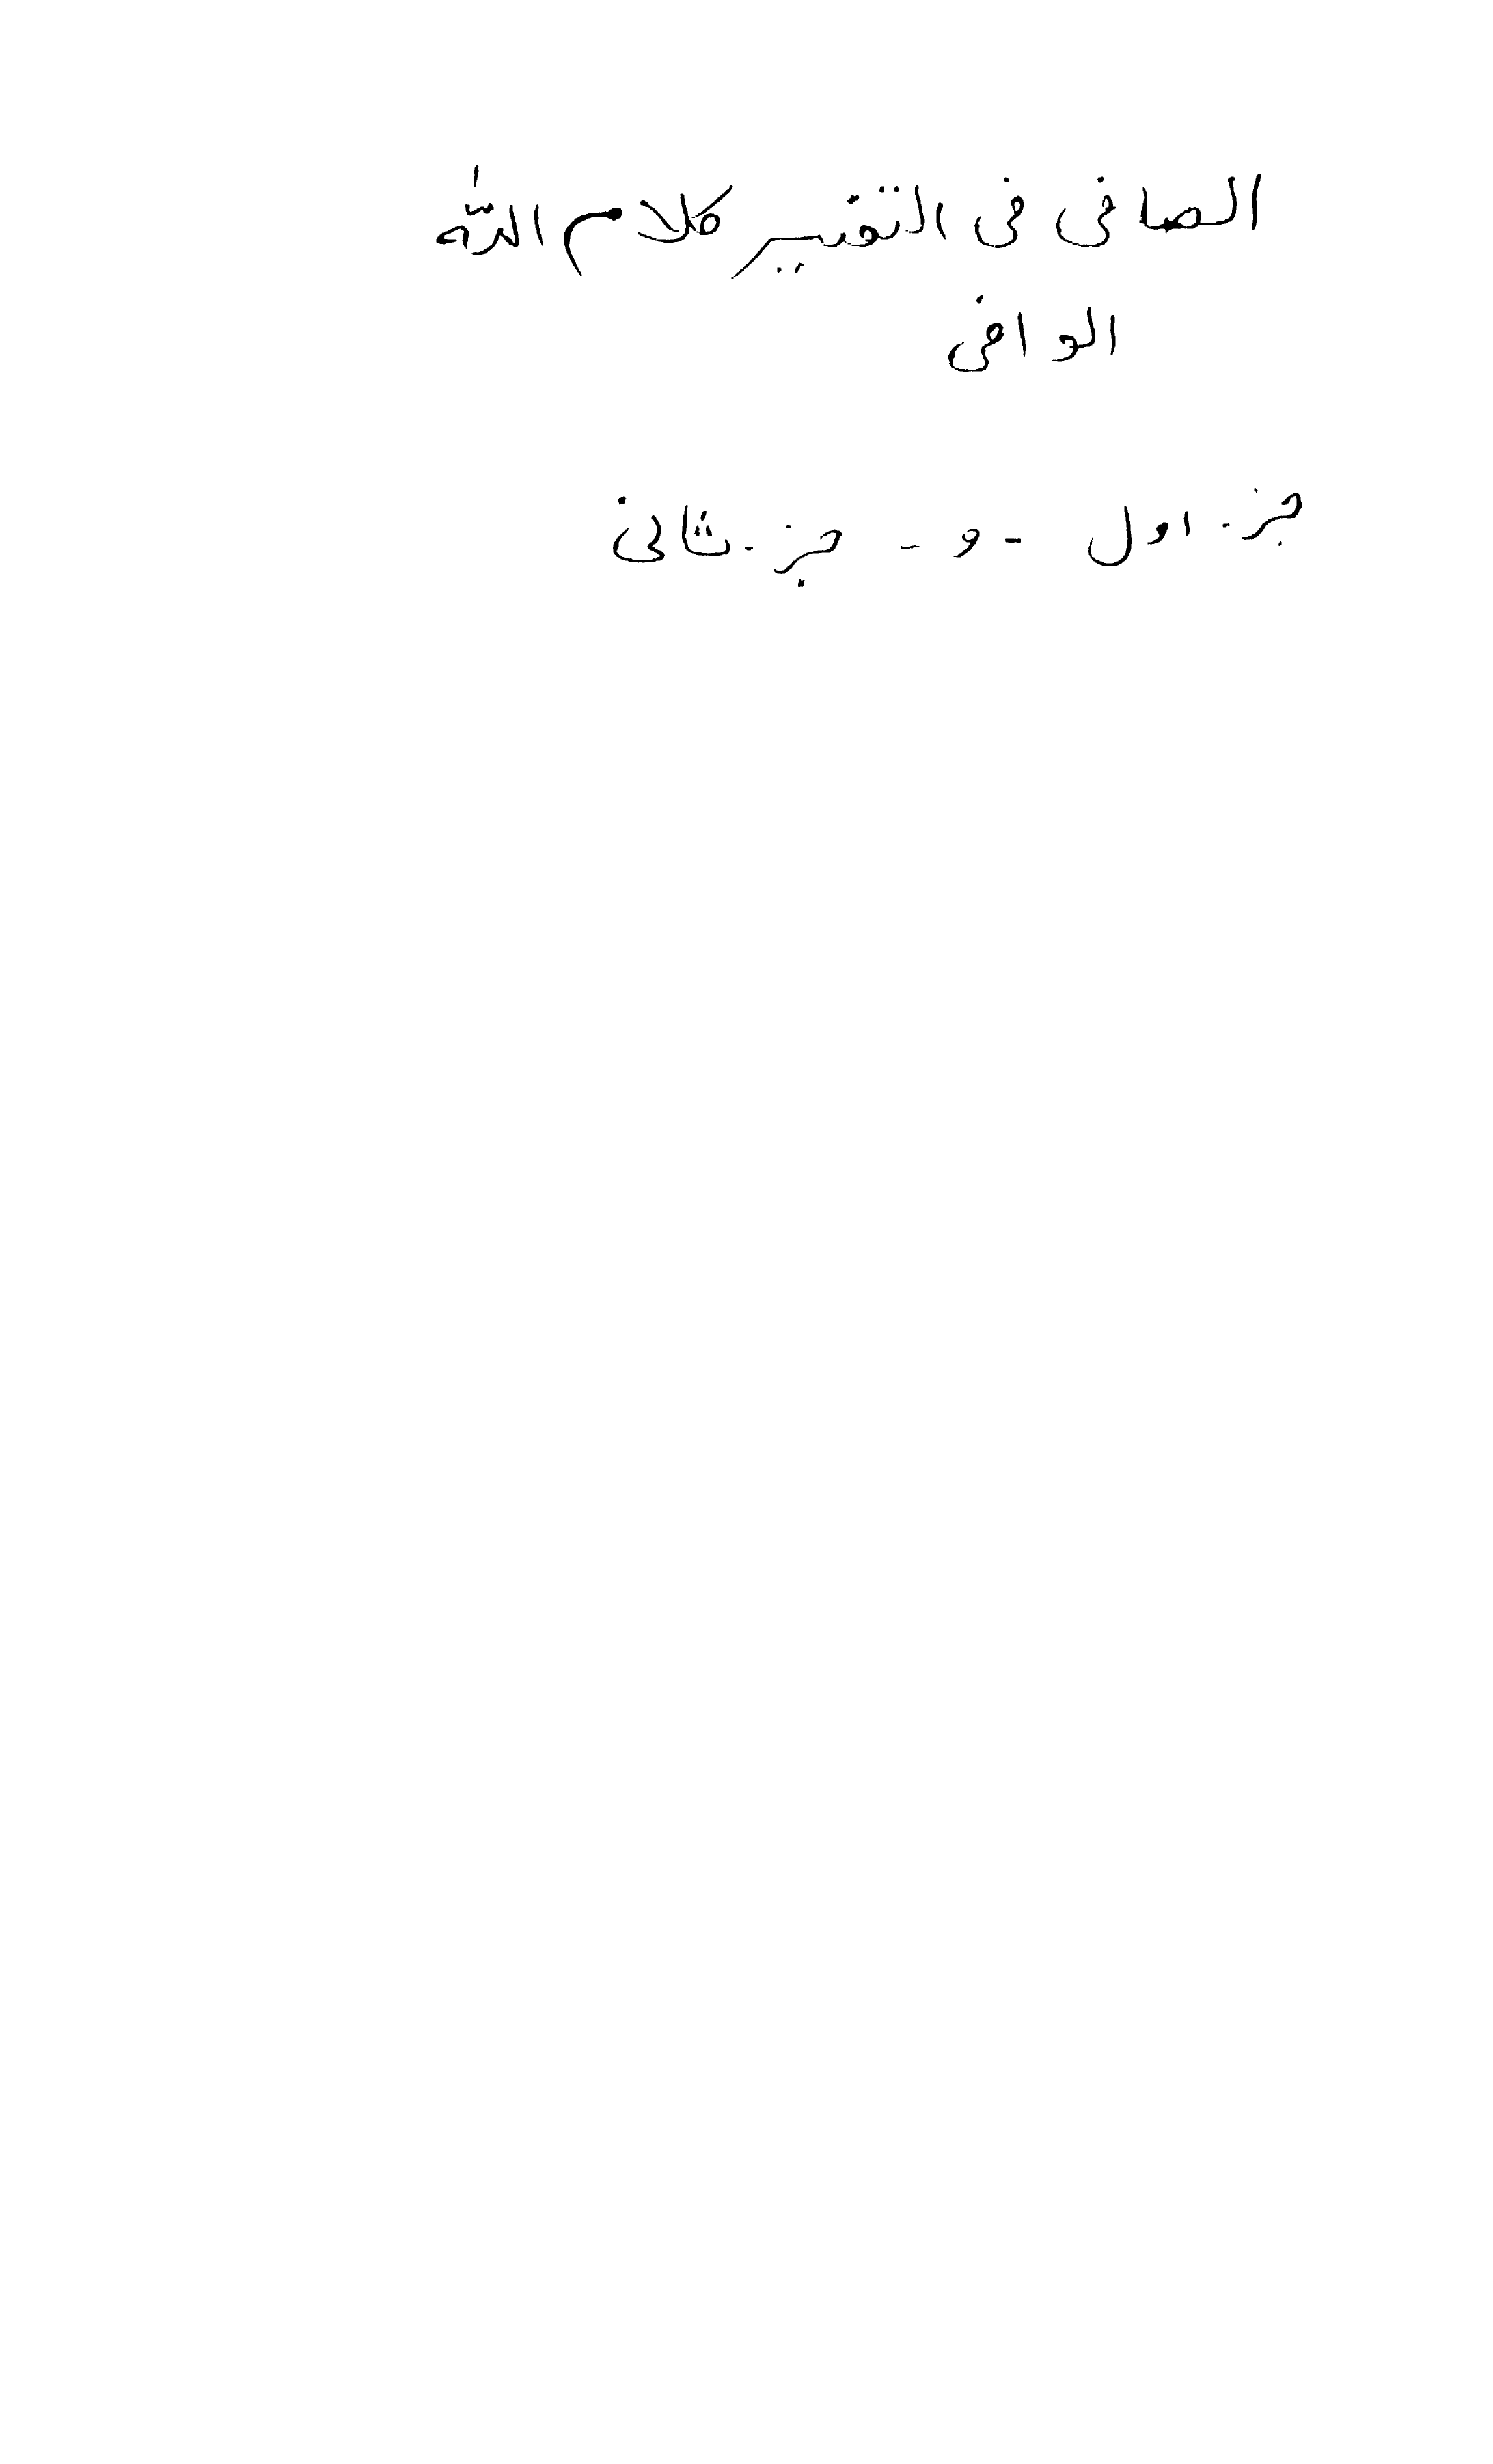 الصافى فى التفسير كلام الله
الوافى
جزء اول - و - جزء ثانى